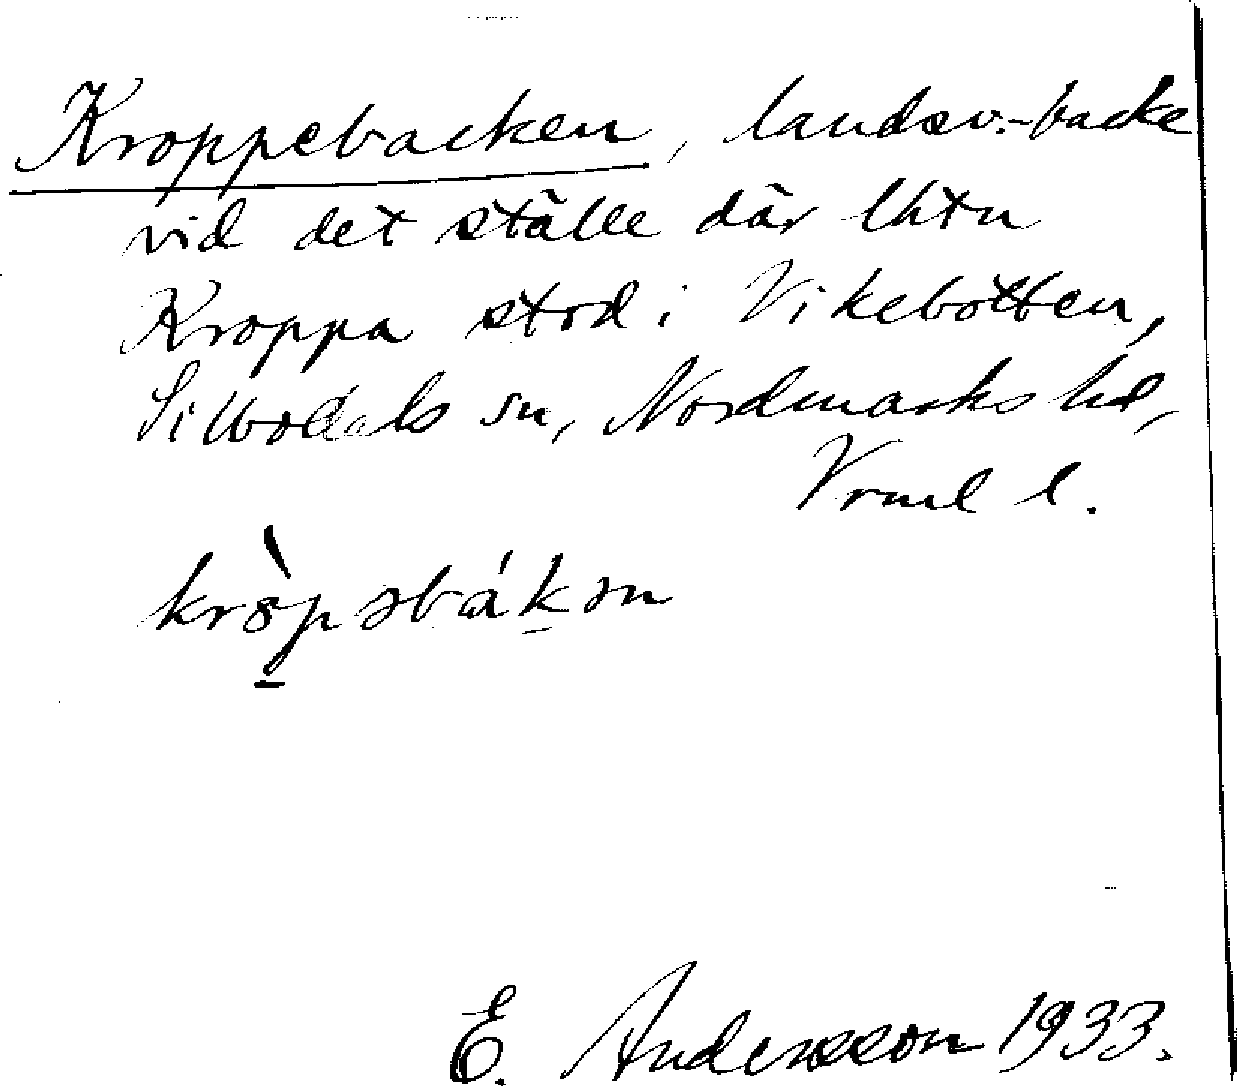 Kroppebacken, landsv.-backe
vid det ställe där lhtn
Kroppa stod i Vikebotten,
Silbodals sn, Nordmarks hd,
Vrml l.
kròpəbákən
E. Andersson 1933.